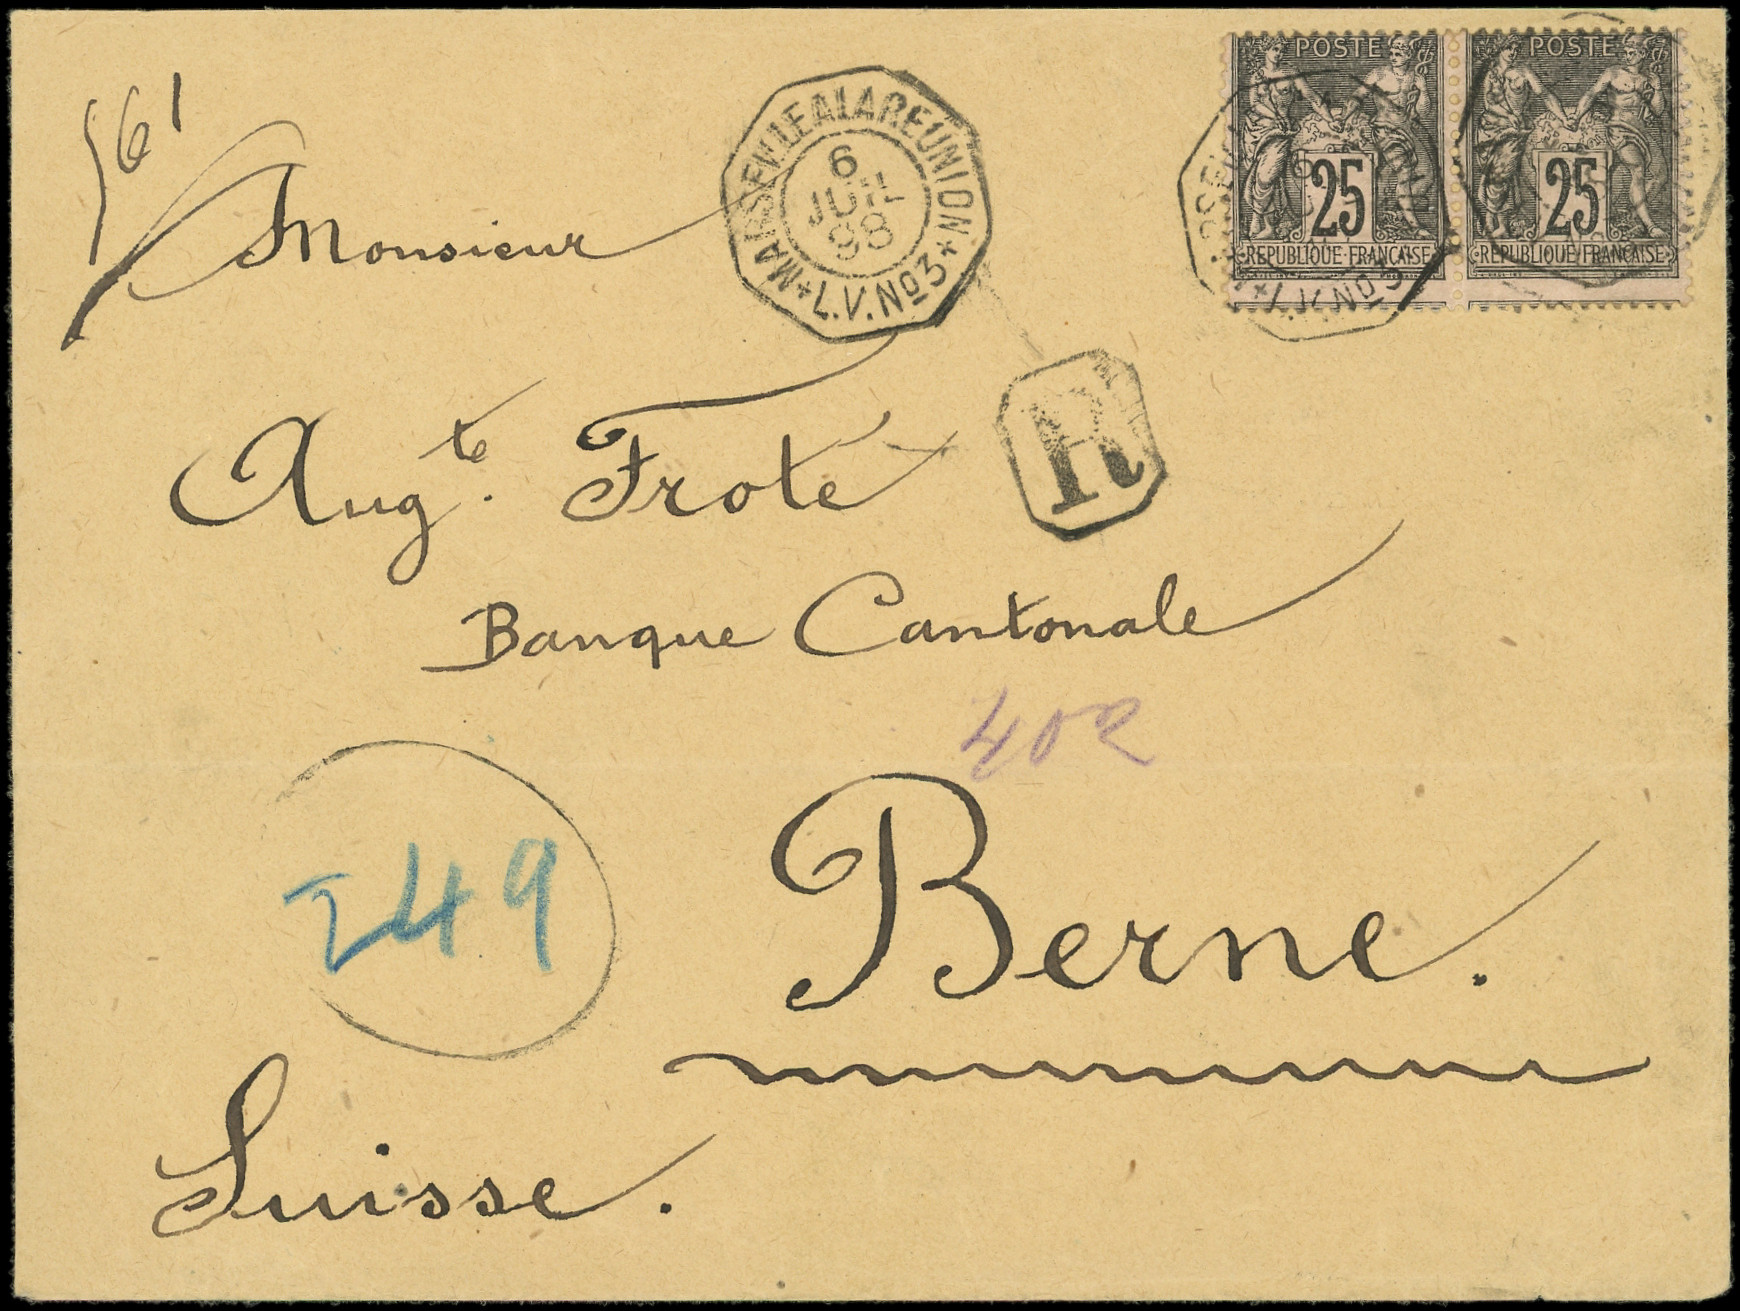 561
POSTE
25
REPUBLIQUE FRANCAISE
POSTE
25
REPUBLIQUE FRANCAISE
MARSEILLE A LA REUNION
6
JUIL
98
L.V.No3
L.V.No3
Monsieur
R
Augte. Froté
Banque Cantonale
402
249
Berne.
Suisse.